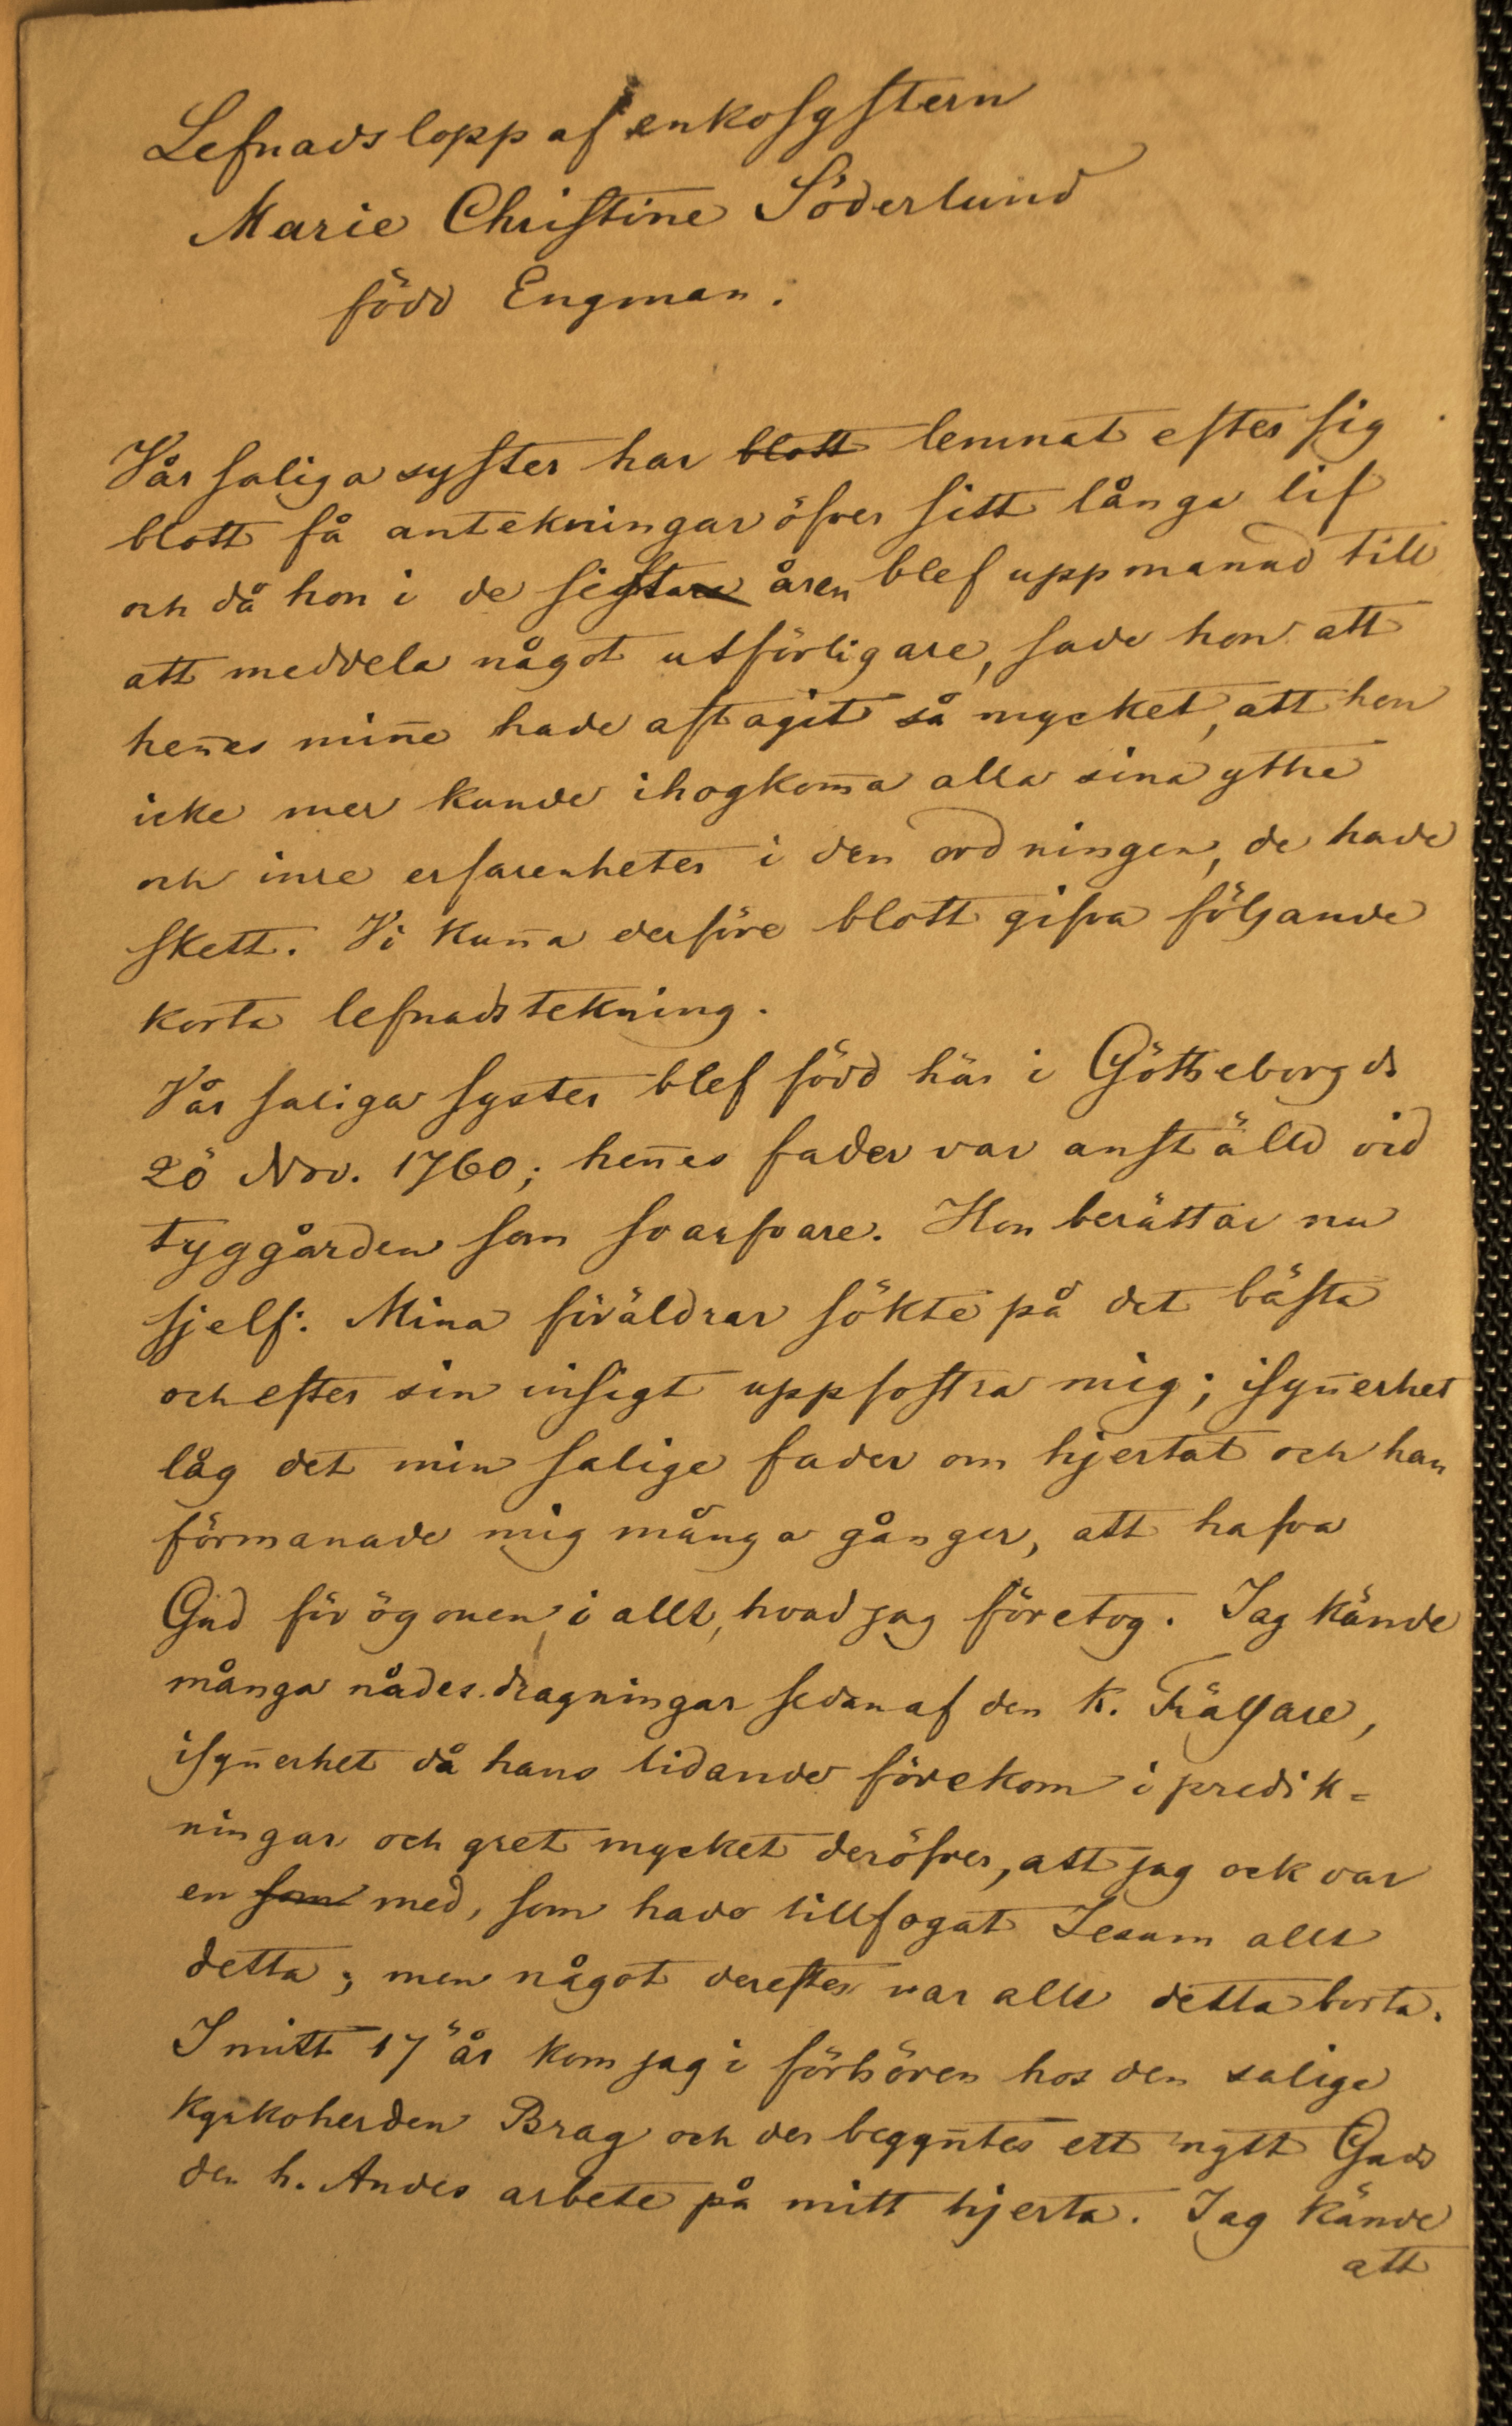 Lefnadslopp af enkosystern
Marie Christine Söderlund
född Engman.
Vår saliga syster har blott lemnat efter sig
blott få antekningar öfver sitt långa lif
och då hon i de sistare åren blef uppmanad till
att meddela något utförligare, sade hon att
hen̄es min̄e hade aftagit så mycket, att hon
icke mer kunde ihogkom̄a alla sina yttre
och inre erfarenheter i den ordningen, de hade
skett. Vi kun̄a derföre blott gifva följande
korta lefnadstekning.
Vår saliga syster blef född här i Götheborg d.
20 Nov. 1760; hen̄es fader var anstäld vid
tyggården som svarfvare. Hon berättar nu
sjelf: Mina föräldrar sökte på det bästa
och efter sin insigt uppfostra mig; isyn̄erhet
låg det min salige fader om hjertat och han
förmanade mig många gånger, att hafva
Gud för ögonen i allt, hvad jag företog. Jag kände
många nådesdragningar sedan af den k. Frälsare,
isyn̄erhet då hans lidande förekom i predik=
ningar och gret mycket deröfver, att jag ock var
en som med, som hade tillfogat Jesum allt
detta; men något derefter var allt detta borta.
I mitt 17 år kom jag i förhören hos den salige
kyrkoherden Brag och der begyn̄tes ett nytt Guds
den h. Andes arbete på mitt hjerta. Jag kände
att